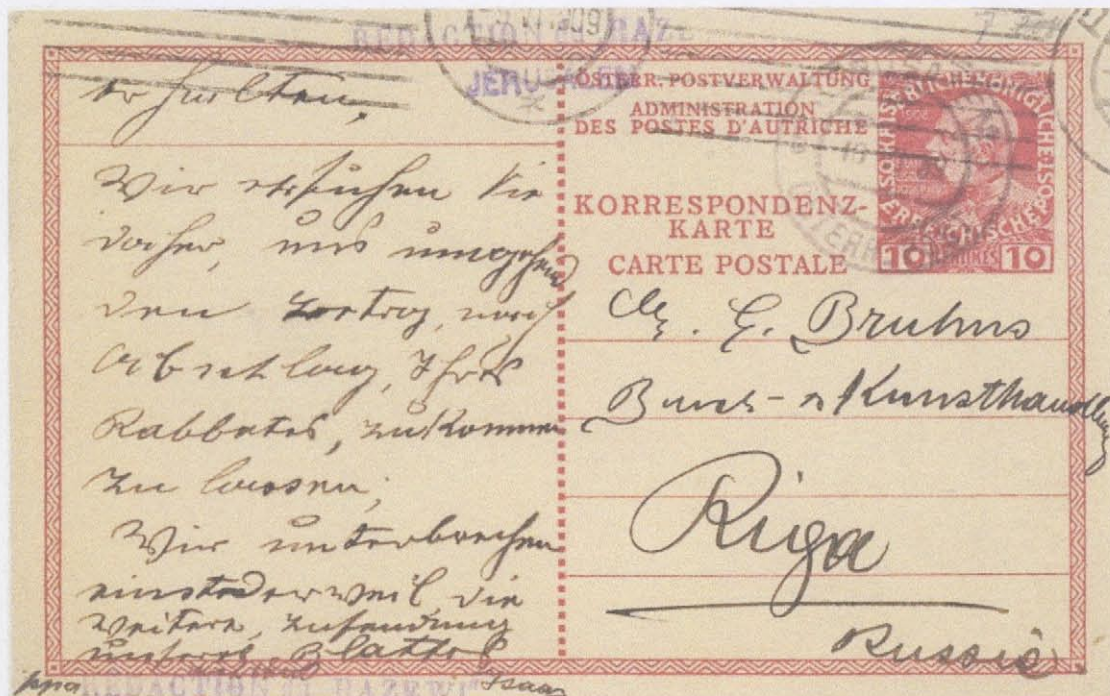 REDACTION
JERUSALEM
ÖSTERR. POSTVERWALTUNG
ADMINISTRATION
DES POSTES D'AUTRICHE
KORRESPONDENZ-
KARTE
CARTE POSTALE
10 10
erhalten,
Wir ersuchen Sie
daher, uns umgehend
den Betrag, nach
Abschlag, Ihres
Rabbates, zukommen
zu lassen;
Wir unterbrechen
einstweil die
weitere Zusendung
unseres Blattes
G. Bruhns
Buch- u Kunsthandlung
Riga
Russie
ppa Isaac
REDACTION